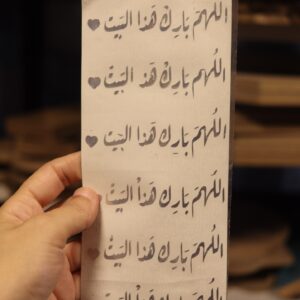 اللهم بارك هذا البيت ♥
اللهم بارك هذا البيت ♥
اللهم بارك هذا البيت ♥
اللهم بارك هذا البيت ♥
اللهم بارك هذا البيت ♥
اللهم بارك هذا البيت